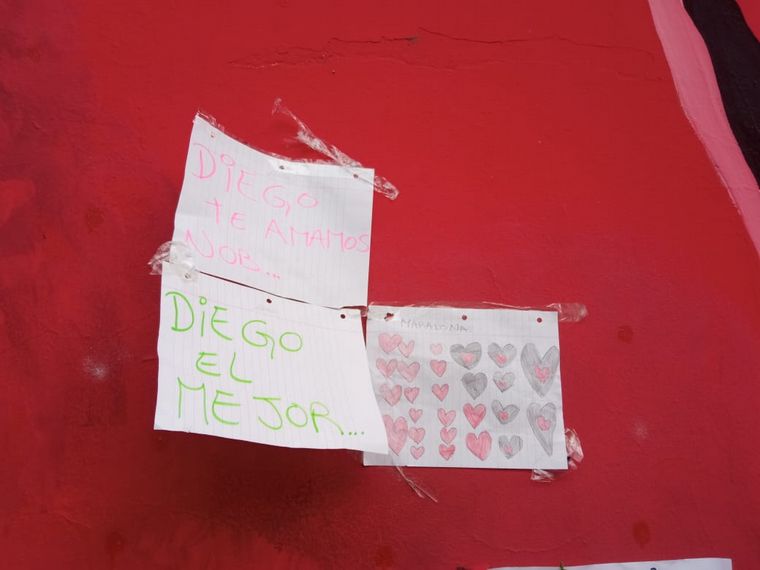 DiEGO
tE AMAMOS
NOB...
DiEGO
EL
MEJOR...
MARADONA